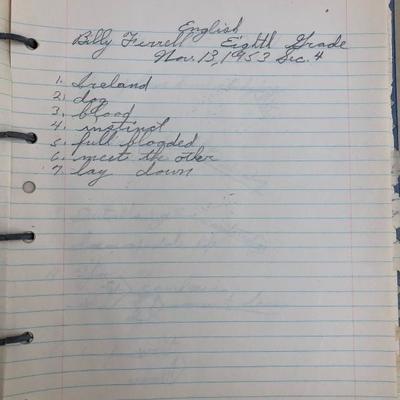 English
Billy Furrell Eighth Grade
Nov. 13, 1953 Sec. 4
1. Ireland
2. dog
3. blood
4. instinct
5. full blooded
6. meet the other
7. lay down